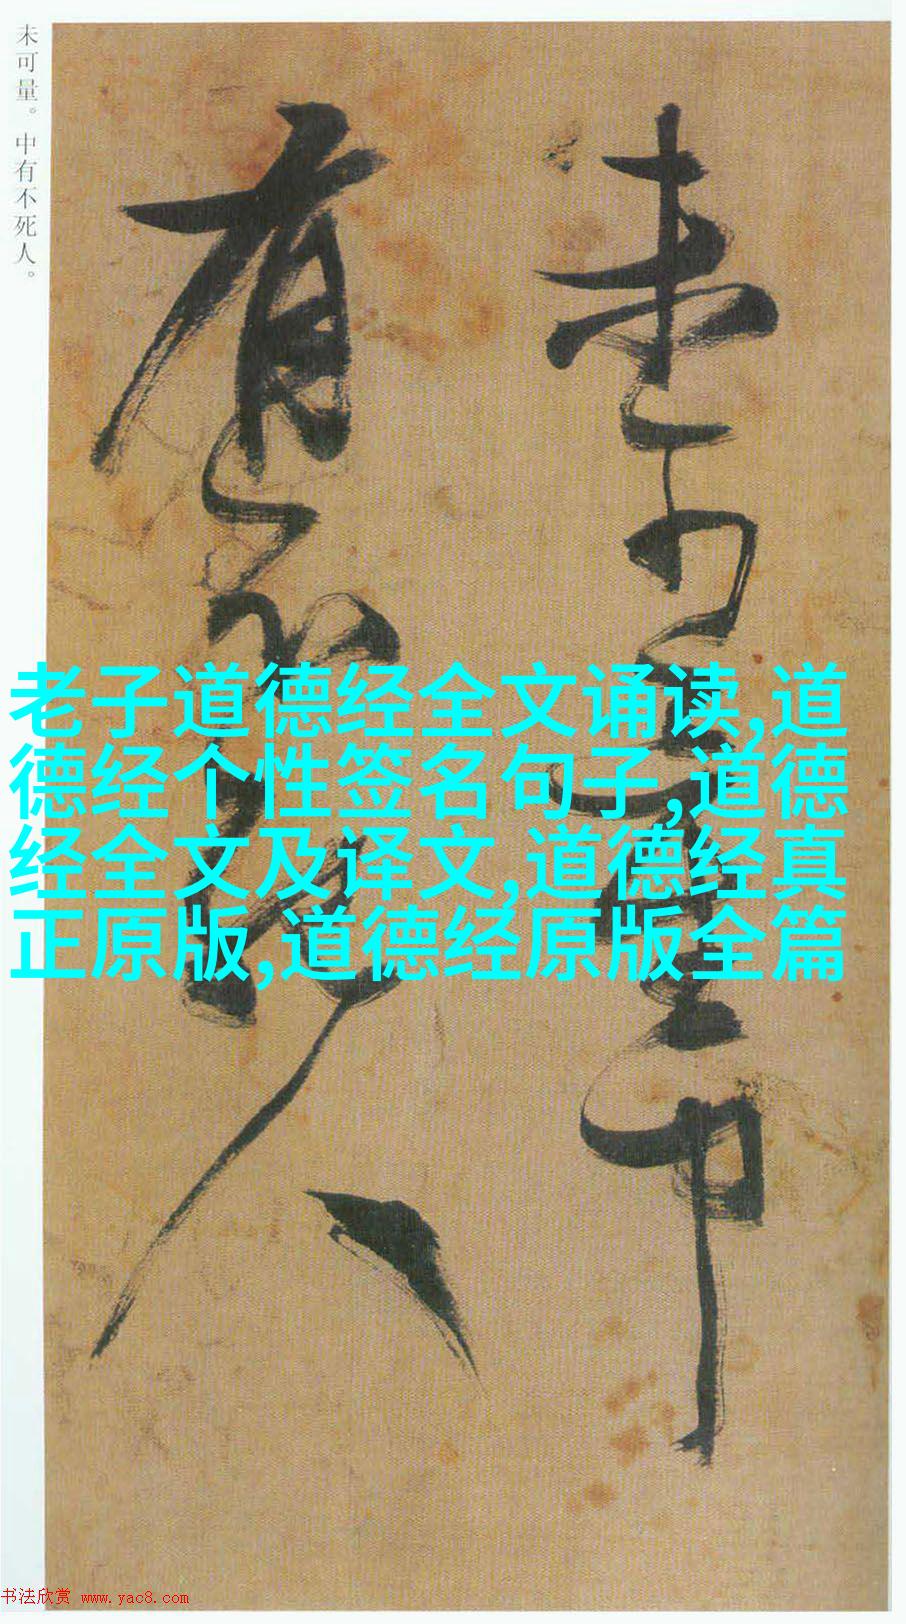 未可量。中有不死人。
未可量中
有不死人
老子道德经全文诵读,道
德经个性签名句子,道德
经全文及译文,道德经真
正原版,道德经原版全篇
书法欣赏 www.yac8.com